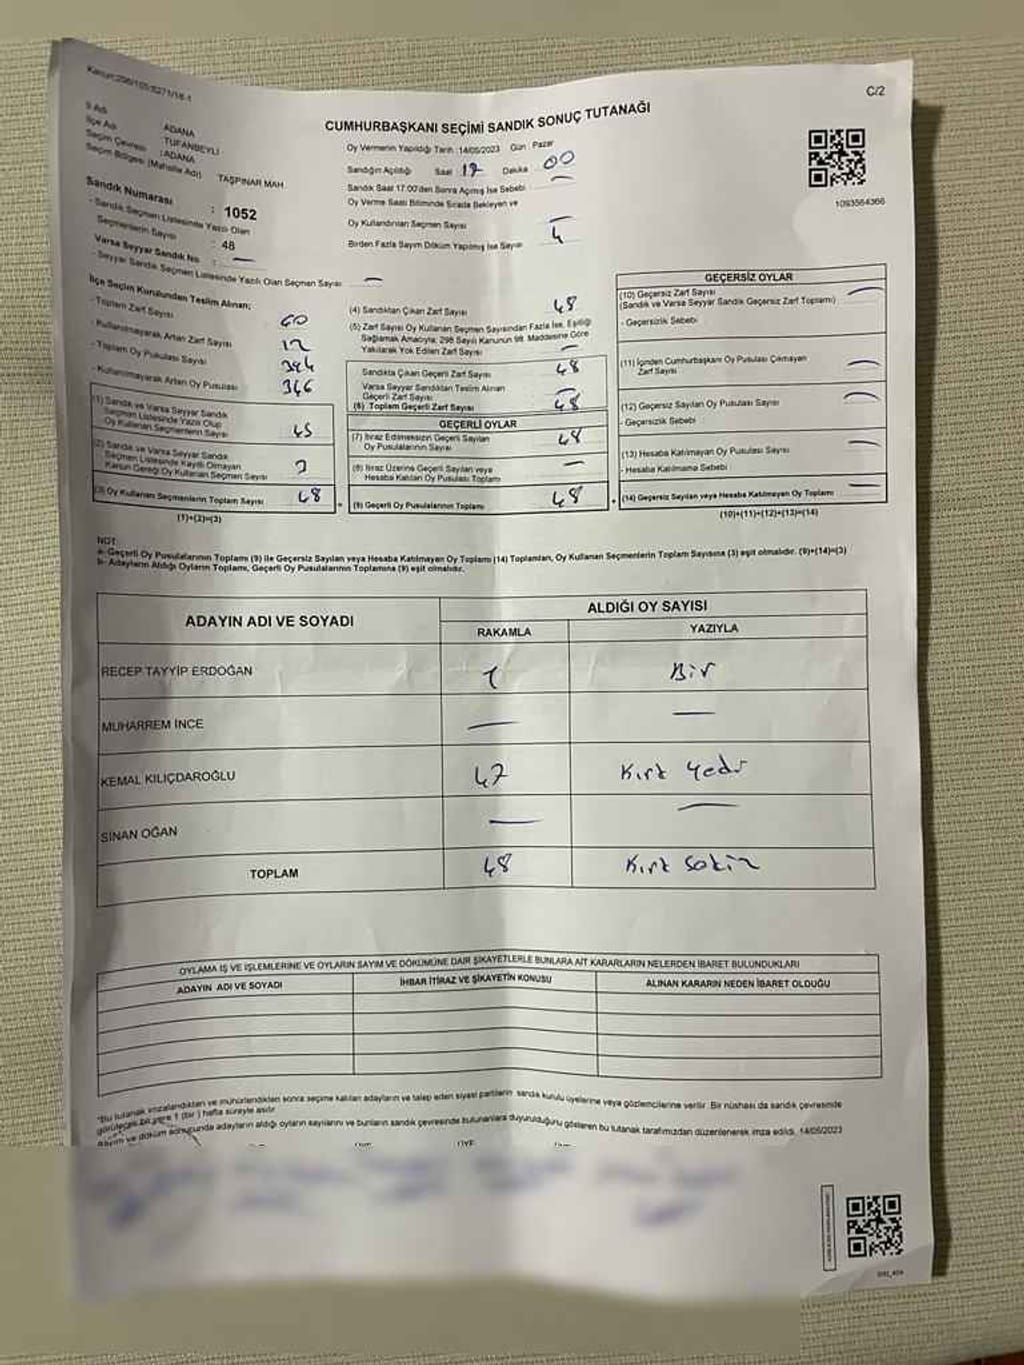 Kanun:298/105;6271/18-1
C/2
CUMHURBAŞKANI SEÇİMİ SANDIK SONUÇ TUTANAĞI
İl Adı : ADANA
İlçe Adı : TUFANBEYLİ
Seçim Çevresi : ADANA
Seçim Bölgesi (Mahalle Adı) TAŞPINAR MAH
Sandık Numarası : 1052
- Sandık Seçmen Listesinde Yazılı Olan
Seçmenlerin Sayısı : 48
Varsa Seyyar Sandık No : —
- Seyyar Sandık Seçmen Listesinde Yazılı Olan Seçmen Sayısı —
Oy Vermenin Yapıldığı Tarih :14/05/2023 Gün : Pazar
Sandığın Açıldığı Saat 17 Dakika 00
Sandık Saat 17:00'den Sonra Açılmış İse Sebebi —
Oy Verme Saati Bitiminde Sırada Bekleyen ve
Oy Kullandırılan Seçmen Sayısı —
Birden Fazla Sayım Döküm Yapılmış İse Sayısı
1093564366
İlçe Seçim Kurulundan Teslim Alınan;
- Toplam Zarf Sayısı 60
- Kullanılmayarak Artan Zarf Sayısı 12
- Toplam Oy Pusulası Sayısı 394
- Kullanılmayarak Artan Oy Pusulası 346
(1) Sandık ve Varsa Seyyar Sandık
Seçmen Listesinde Yazılı Olup
Oy Kullanan Seçmenlerin Sayısı 45
(2) Sandık ve Varsa Seyyar Sandık
Seçmen Listesinde Kayıtlı Olmayan
Kanun Gereği Oy Kullanan Seçmen Sayısı 3
(3) Oy Kullanan Seçmenlerin Toplam Sayısı 48
(1)+(2)=(3)
(4) Sandıktan Çıkan Zarf Sayısı 48
(5) Zarf Sayısı Oy Kullanan Seçmen Sayısından Fazla İse, Eşitliği
Sağlamak Amacıyla; 298 Sayılı Kanunun 98. Maddesine Göre
Yakılarak Yok Edilen Zarf Sayısı —
Sandıkta Çıkan Geçerli Zarf Sayısı 48
Varsa Seyyar Sandıktan Teslim Alınan
Geçerli Zarf Sayısı —
(6) Toplam Geçerli Zarf Sayısı 48
GEÇERLİ OYLAR
(7) İtiraz Edilmeksizin Geçerli Sayılan
Oy Pusulalarının Sayısı 48
(8) İtiraz Üzerine Geçerli Sayılan veya
Hesaba Katılan Oy Pusulası Toplamı —
(9) Geçerli Oy Pusulalarının Toplamı 48
GEÇERSİZ OYLAR
(10) Geçersiz Zarf Sayısı —
(Sandık ve Varsa Seyyar Sandık Geçersiz Zarf Toplamı)
- Geçersizlik Sebebi
(11) İçinden Cumhurbaşkanı Oy Pusulası Çıkmayan
Zarf Sayısı —
(12) Geçersiz Sayılan Oy Pusulası Sayısı —
- Geçersizlik Sebebi
(13) Hesaba Katılmayan Oy Pusulası Sayısı —
- Hesaba Katılmama Sebebi
(14) Geçersiz Sayılan veya Hesaba Katılmayan Oy Toplamı —
(10)+(11)+(12)+(13)=(14)
NOT:
a- Geçerli Oy Pusulalarının Toplamı (9) ile Geçersiz Sayılan veya Hesaba Katılmayan Oy Toplamı (14) Toplamları, Oy Kullanan Seçmenlerin Toplam Sayısına (3) eşit olmalıdır. (9)+(14)=(3)
b- Adayların Aldığı Oyların Toplamı, Geçerli Oy Pusulalarının Toplamına (9) eşit olmalıdır.
ADAYIN ADI VE SOYADI
ALDIĞI OY SAYISI
RAKAMLA YAZIYLA
RECEP TAYYİP ERDOĞAN 1 Bir
MUHARREM İNCE — —
KEMAL KILIÇDAROĞLU 47 Kırk Yedi
SİNAN OĞAN — —
TOPLAM 48 Kırk Sekiz
OYLAMA İŞ VE İŞLEMLERİNE VE OYLARIN SAYIM VE DÖKÜMÜNE DAİR ŞİKAYETLERLE BUNLARA AİT KARARLARIN NELERDEN İBARET BULUNDUKLARI
ADAYIN ADI VE SOYADI İHBAR İTİRAZ VE ŞİKAYETİN KONUSU ALINAN KARARIN NEDEN İBARET OLDUĞU
*Bu tutanak imzalandıktan ve mühürlendikten sonra seçime katılan adayların ve talep eden siyasi partilerin sandık kurulu üyelerine veya gözlemcilerine verilir. Bir nüshası da sandık çevresinde
görülecek bir yere 1 (bir) hafta süreyle asılır.
Sayım ve döküm sonucunda adayların aldığı oyların sayılarını ve bunların sandık çevresinde bulunanlara duyurulduğunu gösteren bu tutanak tarafımızdan düzenlenerek imza edildi. 14/05/2023